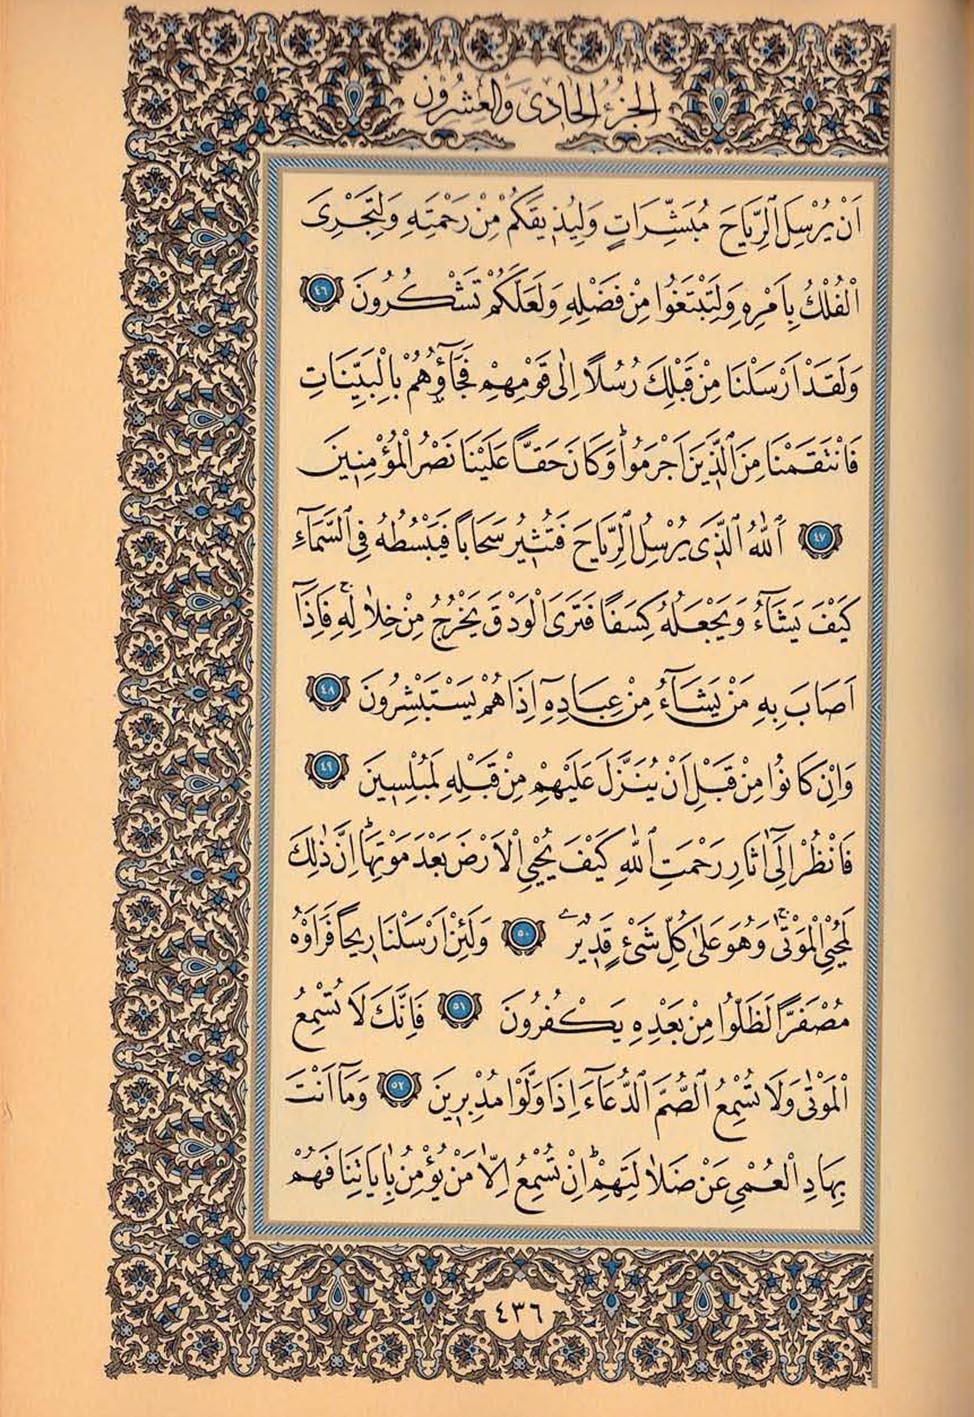 الجزء الحادى والعشرون
اَنْ يُرْسِلَ الرِّيَاحَ مُبَشِّرَاتٍ وَلِيُذ۪يقَكُمْ مِنْ رَحْمَتِه۪ وَلِتَجْرِىَ
الْفُلْكُ بِاَمْرِه۪ وَلِتَبْتَغُوا مِنْ فَضْلِه۪ وَلَعَلَّكُمْ تَشْكُرُونَ ٤٦
وَلَقَدْ اَرْسَلْنَا مِنْ قَبْلِكَ رُسُلًا اِلٰى قَوْمِهِمْ فَجَٓاؤُ۫هُمْ بِالْبَيِّنَاتِ
فَانْتَقَمْنَا مِنَ الَّذ۪ينَ اَجْرَمُواۜ وَكَانَ حَقًّا عَلَيْنَا نَصْرُ الْمُؤْمِن۪ينَ
٤٧ اَللّٰهُ الَّذ۪ى يُرْسِلُ الرِّيَاحَ فَتُث۪يرُ سَحَابًا فَيَبْسُطُهُ فِى السَّمَٓاءِ
كَيْفَ يَشَٓاءُ وَيَجْعَلُهُ كِسَفًا فَتَرَى الْوَدْقَ يَخْرُجُ مِنْ خِلَالِه۪ۚ فَاِذَٓا
اَصَابَ بِه۪ مَنْ يَشَٓاءُ مِنْ عِبَادِه۪ٓ اِذَا هُمْ يَسْتَبْشِرُونَ ٤٨
وَاِنْ كَانُوا مِنْ قَبْلِ اَنْ يُنَزَّلَ عَلَيْهِمْ مِنْ قَبْلِه۪ لَمُبْلِس۪ينَ ٤٩
فَانْظُرْ اِلٰٓى اٰثَارِ رَحْمَتِ اللّٰهِ كَيْفَ يُحْيِى الْاَرْضَ بَعْدَ مَوْتِهَاۜ اِنَّ ذٰلِكَ
لَمُحْيِى الْمَوْتٰىۚ وَهُوَ عَلٰى كُلِّ شَىْءٍ قَد۪يرٌ ٥٠ وَلَئِنْ اَرْسَلْنَا ر۪يحًا فَرَاَوْهُ
مُصْفَرًّا لَظَلُّوا مِنْ بَعْدِه۪ يَكْفُرُونَ ٥١ فَاِنَّكَ لَا تُسْمِعُ
الْمَوْتٰى وَلَا تُسْمِعُ الصُّمَّ الدُّعَٓاءَ اِذَا وَلَّوْا مُدْبِر۪ينَ ٥٢ وَمَٓا اَنْتَ
بِهَادِ الْعُمْىِ عَنْ ضَلَالَتِهِمْۜ اِنْ تُسْمِعُ اِلَّا مَنْ يُؤْمِنُ بِاٰيَاتِنَا فَهُمْ
٤٣٦